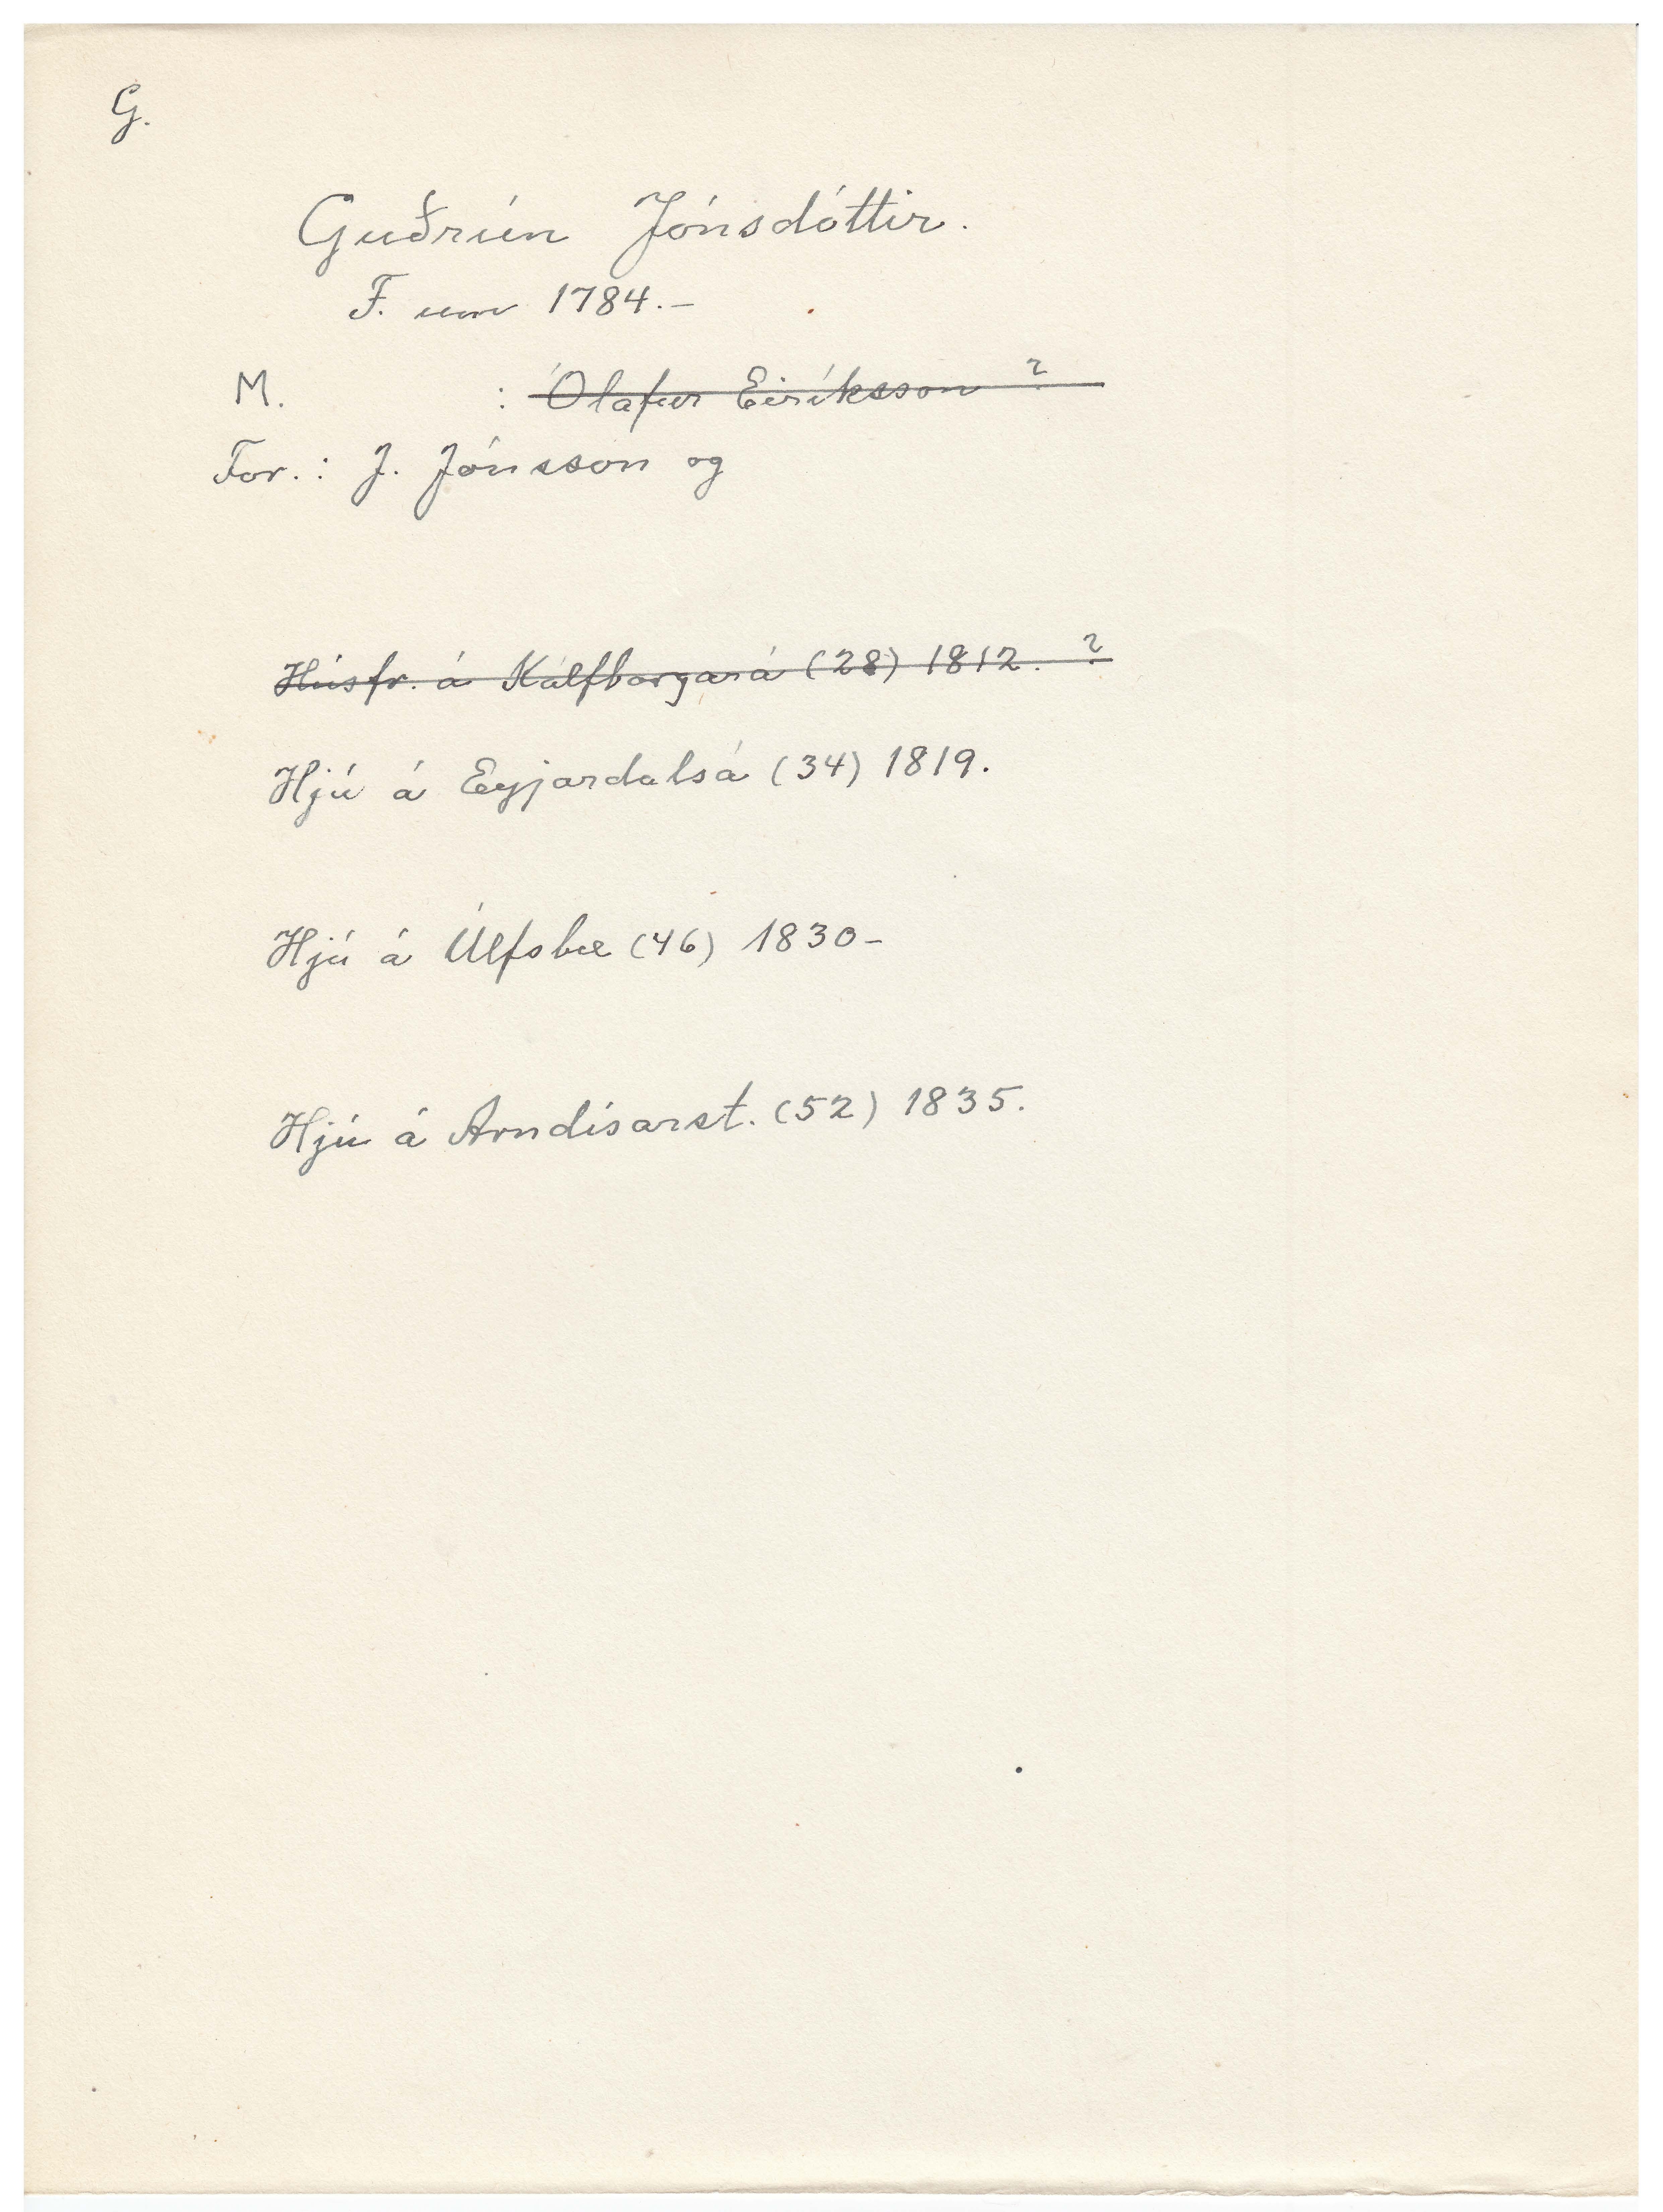 G.
Guðrún Jónsdóttir.
F. um 1784.-
M. : Ólafur Eiríksson ?
For.: J. Jónsson og
Húsfr. á Kálfborgará (28) 1812. ?
Hjú á Eyjardalsá (34) 1819.
Hjú á Úlfsbæ (46) 1830-
Hjú á Arndísarst. (52) 1835.